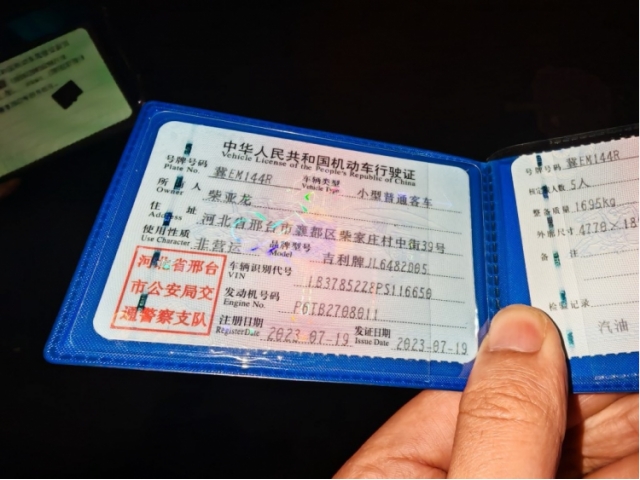 中华人民共和国机动车行驶证
Vehicle License of the People's Republic of China
号牌号码 冀EM144R 车辆类型 小型普通客车
Plate No. Vehicle Type
所有人 柴亚龙
Owner
住址 河北省邢台市襄都区柴家庄村中街39号
Address
使用性质 非营运 品牌型号 吉利牌JL6482D05
Use Character Model
河北省邢台
市公安局交
通警察支队
车辆识别代号 LB37852Z8PS116650
VIN
发动机号码 P6TB2708011
Engine No.
注册日期 2023-07-19 发证日期 2023-07-19
Register Date Issue Date
号牌号码 冀EM144R
核定载人数 5人
整备质量 1695kg
外廓尺寸 4770×18
备注
检验记录
汽油